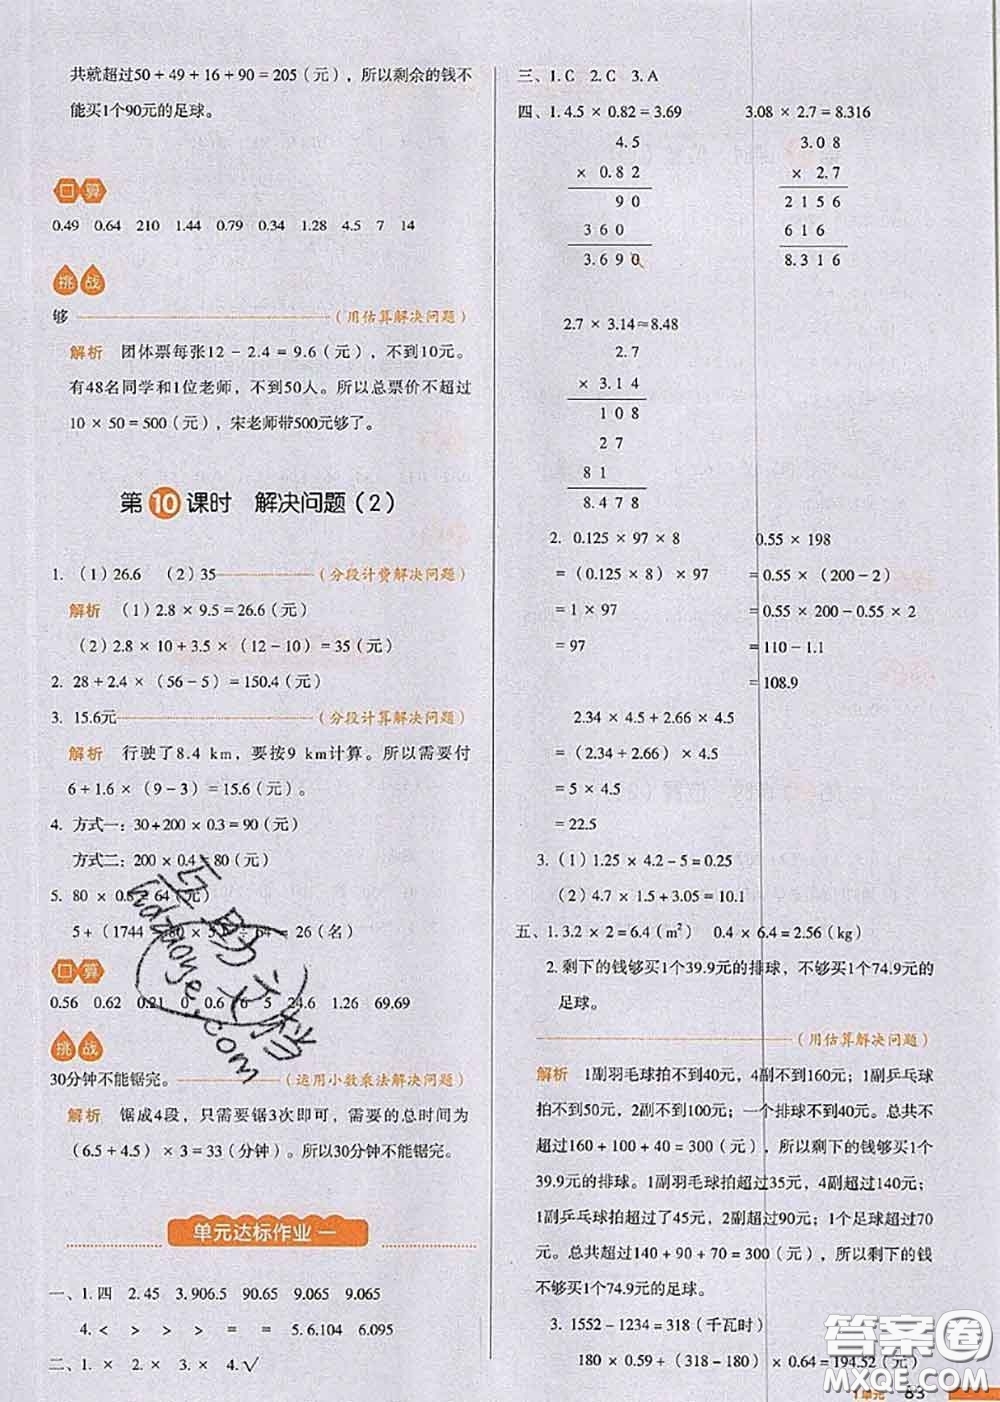 共就超过50+49+16+90=205(元),所以剩余的钱不
能买1个90元的足球。
口算
0.49 0.64 210 1.44 0.79 0.34 1.28 4.5 7 14
挑战
够(用估算解决问题)
解析 团体票每张12-2.4=9.6(元),不到10元。
有48名同学和1位老师,不到50人。所以总票价不超过
10×50=500(元),宋老师带500元够了。
第10课时 解决问题(2)
1. (1)26.6 (2)35(分段计费解决问题)
解析 (1)2.8×9.5=26.6(元)
(2)2.8×10+3.5×(12-10)=35(元)
2. 28+2.4×(56-5)=150.4(元)
3. 15.6元(分段计算解决问题)
解析 行驶了8.4 km,要按9 km计算。所以需要付
6+1.6×(9-3)=15.6(元)。
4. 方式一:30+200×0.3=90(元)
方式二:200×0.4=80(元)
5. 80×0.8=64(元)
5+(1744-80×5)÷64=26(名)
口算
0.56 0.62 0.21 0 0.6 6 5 24.6 1.26 69.69
挑战
30分钟不能锯完。(运用小数乘法解决问题)
解析 锯成4段,只需要锯3次即可,需要的总时间为
(6.5+4.5)×3=33(分钟)。所以30分钟不能锯完。
单元达标作业一
一、1.四 2.45 3.906.5 90.65 9.065 9.065
4.< > > > = = 5.6.104 6.095
二、1.× 2.× 3.× 4.√
三、1.C 2.C 3.A
四、1.4.5×0.82=3.69 3.08×2.7=8.316
4.5 3.08
×0.82 ×2.7
90 2156
360 616
3.690 8.316
2.7×3.14≈8.48
2.7
×3.14
108
27
81
8.478
2. 0.125×97×8 0.55×198
=(0.125×8)×97 =0.55×(200-2)
=1×97 =0.55×200-0.55×2
=97 =110-1.1
=108.9
2.34×4.5+2.66×4.5
=(2.34+2.66)×4.5
=5×4.5
=22.5
3.(1)1.25×4.2-5=0.25
(2)4.7×1.5+3.05=10.1
五、1.3.2×2=6.4(m²) 0.4×6.4=2.56(kg)
2. 剩下的钱够买1个39.9元的排球,不够买1个74.9元的
足球。
(用估算解决问题)
解析 1副羽毛球拍不到40元,4副不到160元;1副乒乓球
拍不到50元,2副不到100元;一个排球不到40元。总共不
超过160+100+40=300(元),所以剩下的钱够买1个
39.9元的排球。1副羽毛球拍超过35元,4副超过140元;
1副乒乓球拍超过了45元,2副超过90元;1个足球超过70
元。总共超过140+90+70=300(元),所以剩下的钱
不够买1个74.9元的足球。
3. 1552-1234=318(千瓦时)
180×0.59+(318-180)×0.64=194.52(元)
1单元 83
答案圈
MXQE.COM